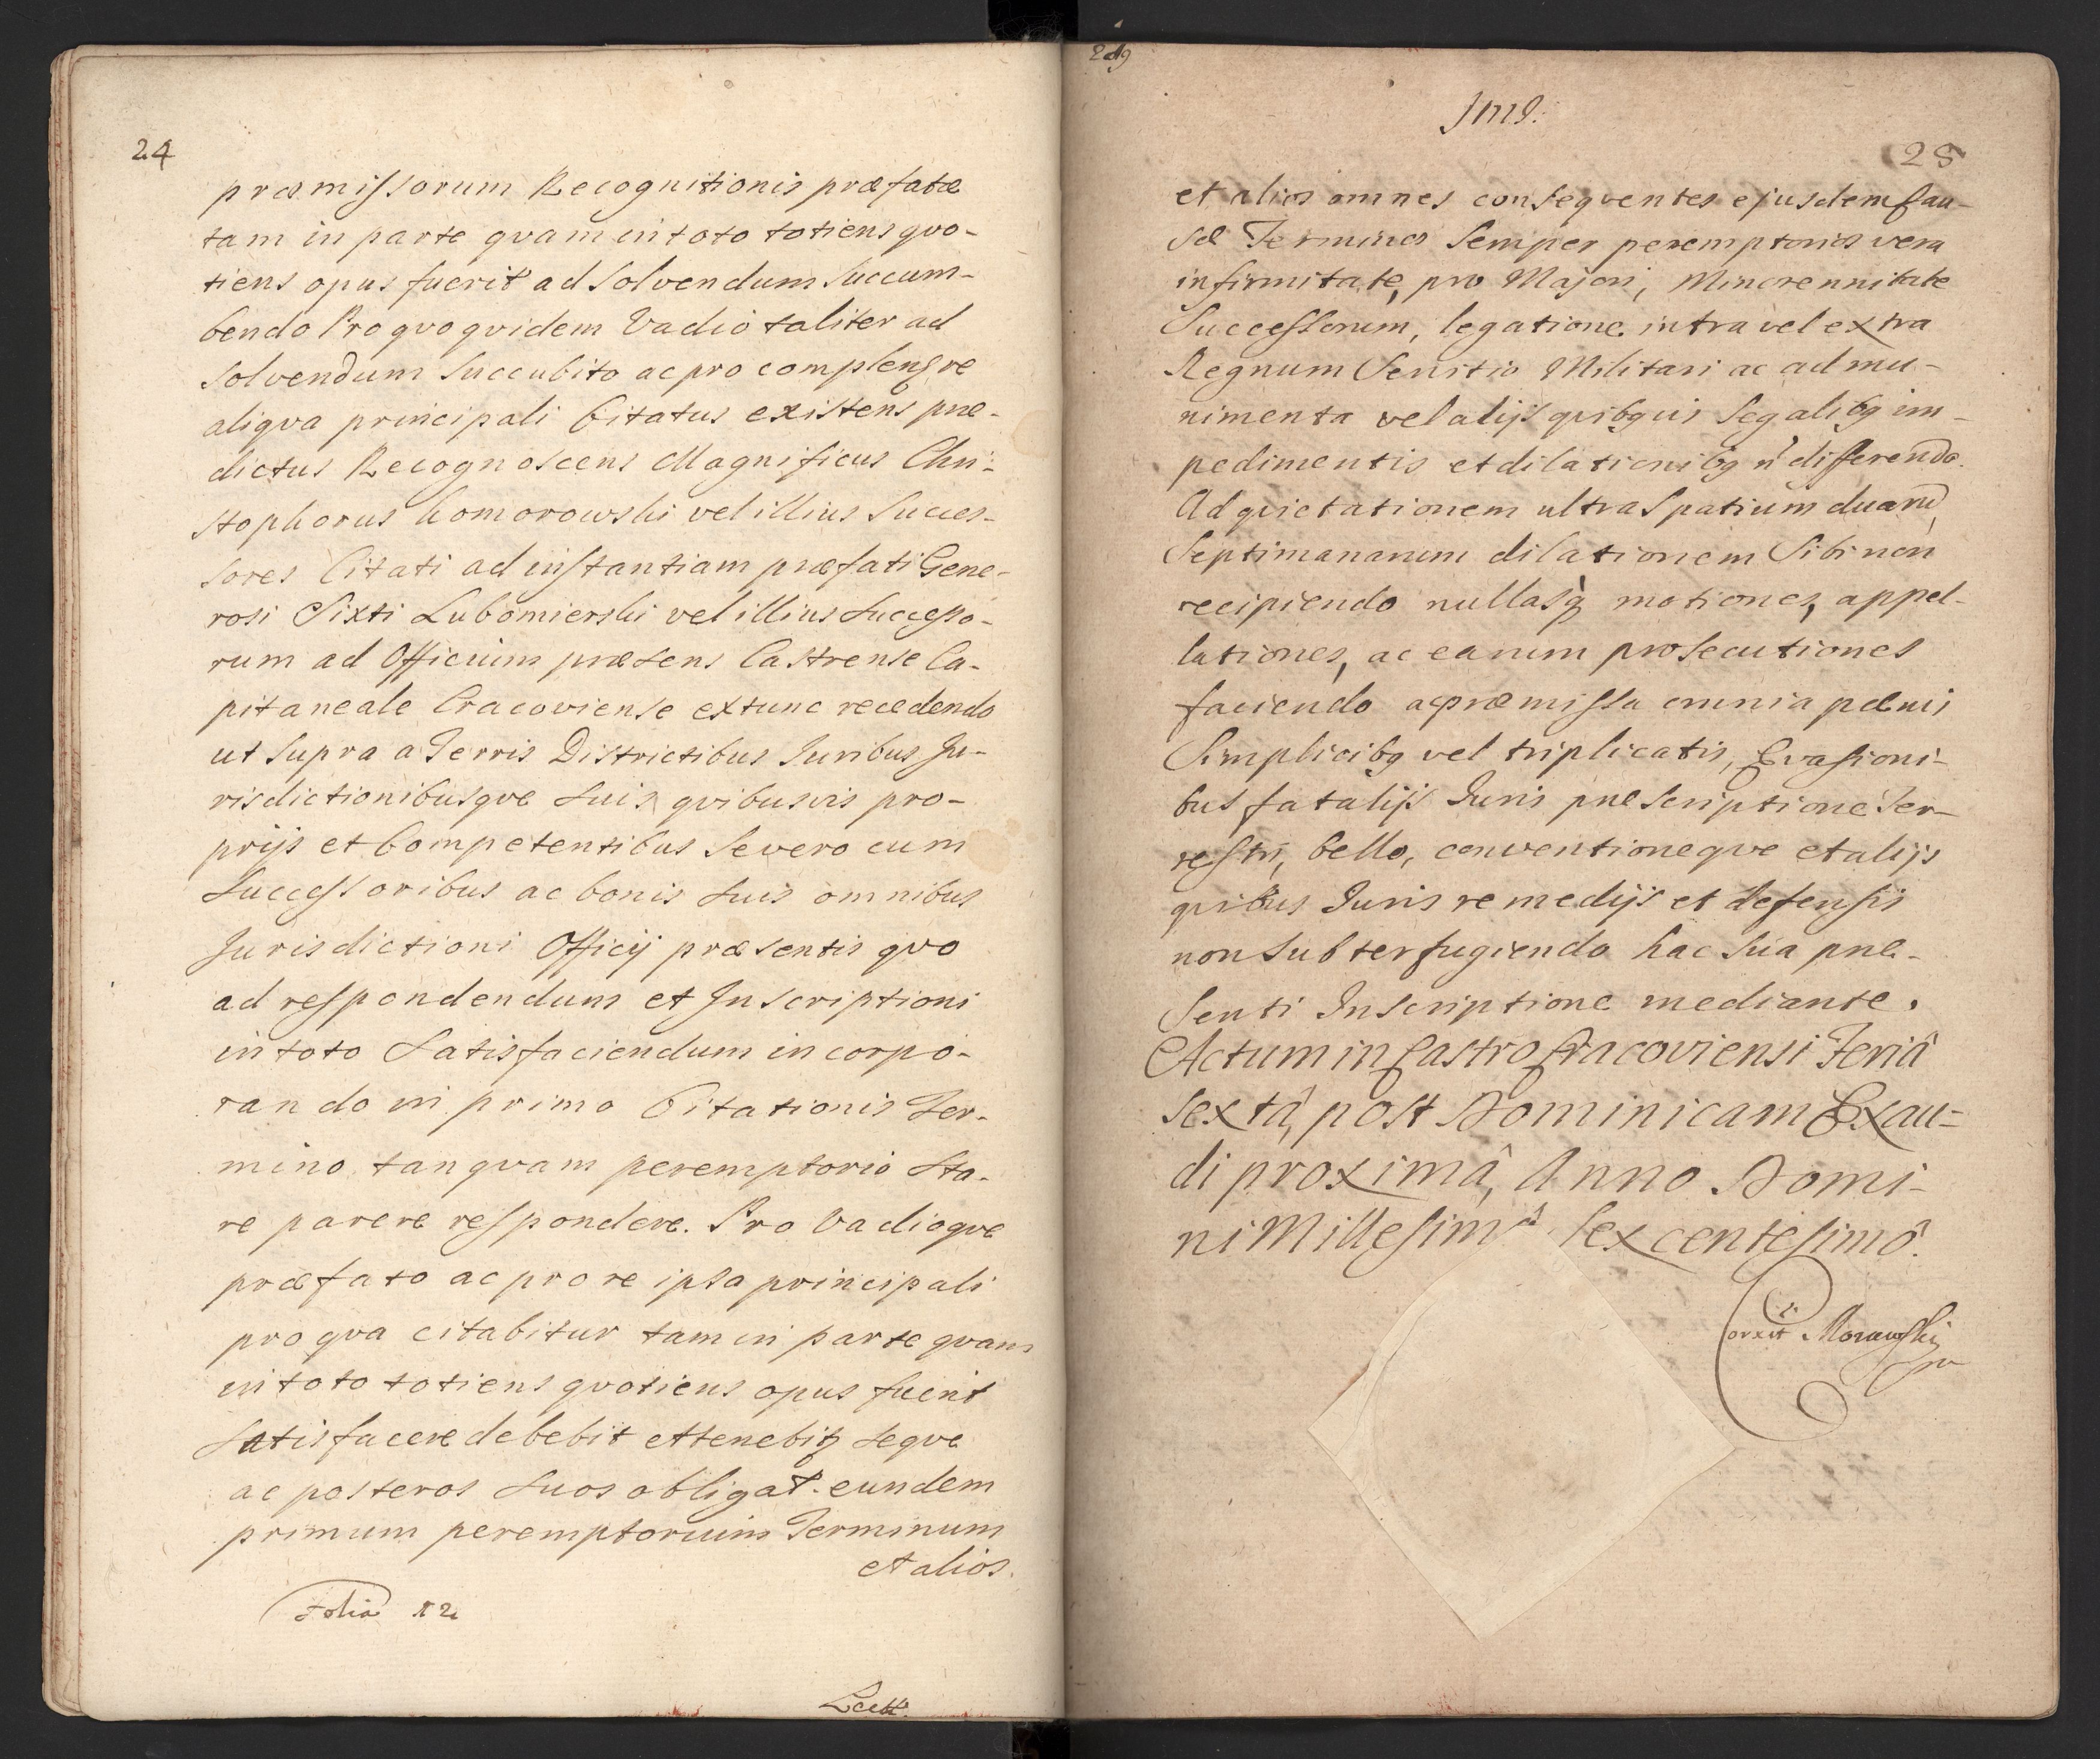 24
præmissorum Recognitionis præfatæ
tam in parte qvam in toto totiens qvo-
tiens opus fuerit ad solvendum succum-
bendo Pro qvo qvidem Vadio taliter ad
solvendum succubito ac pro re
aliqva principali Citatus existens præ-
dictus Recognoscens Magnificus Chri-
stophorus Komorowski vel illius Succes-
sores Citati ad instantiam præfati Gene-
rosi Sixti Lubomierski vel illius Successo-
rum ad Officium præsens Castrense Ca-
pitaneale Cracoviense extunc recedendo
ut supra a Terris Districtibus Juribus Ju-
risdictionibusqve suis qvibusvis pro-
prijs et Competentibus Severo cum
Successoribus ac bonis suis omnibus
Jurisdictioni Officij præsentis qvo
ad respondendum et Inscriptioni
in toto Satisfaciendum incorpo-
rando in primo Citationis Ter-
mino tanqvam peremptorio Sta-
re parere respondere. Pro Vadioqve
præfato ac pro re ipsa principali
pro qva citabitur tam in parte qvam
in toto totiens qvotiens opus fuerit
Satisfacere debebit et tenebitꝫ seqve
ac posteros suos obligat. eundem
primum peremptorium Terminum
et alios.
Folia 12

28
et alios omnes conseqventes ejusdem Cau-
sæ Terminos Semper peremptorios vera
infirmitate, pro Majori, Minorennitate
Successorum, legatione intra vel extra
Regnum Servitio Militari ac ad mu-
nimenta vel alijs qvibꝫvis Legalibꝫ im-
pedimentis et dilationibꝫ ñ differendo.
Ad qvietationem ultra Spatium duarū
Septimanarum dilationem Sibi non
recipiendo nullasqꝫ motiones, appel-
lationes, ac earum prosecutiones
faciendo ac præmissa omnia pænis
Simplicibꝫ vel triplicatis, Evasioni-
bus fatalijs Juris præscriptione Ter-
restri, bello, conventioneqve et alijs
qvibus Juris remedijs et defensis
non subterfugiendo hac sua præ-
senti Inscriptione mediante.
Actum in Castro Cracoviensi Feriâ
sextâ, post Dominicam Exau-
di proximâ, Anno Domi-
ni Millesimô Sexcentesimô.
Correxit Morawski